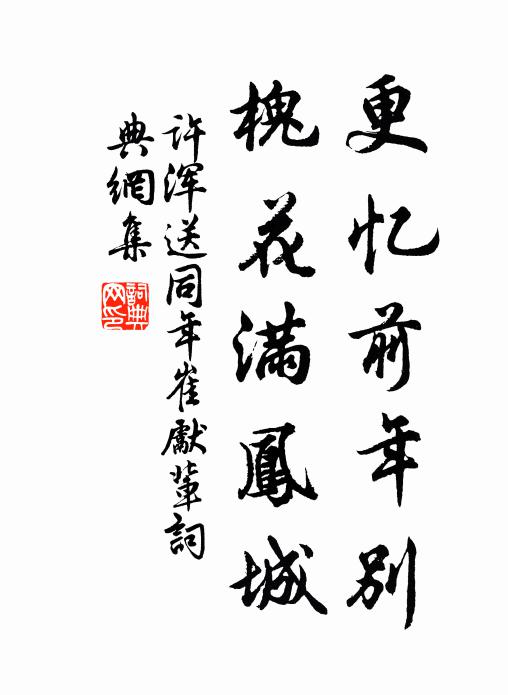 更忆前年别
槐花满鳳城
许浑送同年崔獻輩詞
典網集
詞典
网印